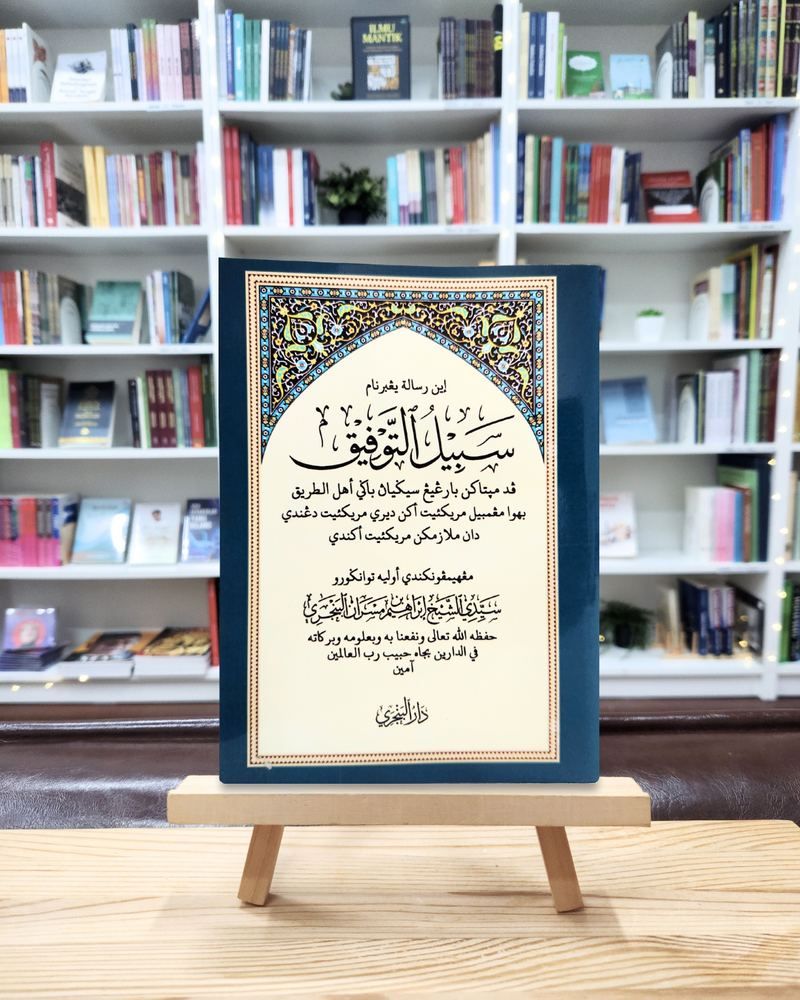 ILMU
MANTIK
اين رسالة يڠبرنام
سَبِيْلُ ٱلتَّوْفِيق
ڤد مڽتاكن بارڠيڠ سيكيان باݢي أهل الطريق
بهوا مڠمبيل مريكئيت أكن ديري مريكئيت دڠندي
دان ملازمكن مريكئيت أكندي
مڠهيمڤونكندي أوليه توانكورو
سَيِّدِي الشَّيْخ إِبْرَاهِيْم مَسْرَان الْبَنْجَرِي
حفظه الله تعالى ونفعنا به وبعلومه وبركاته
في الدارين بجاه حبيب رب العالمين
آمين
دَارُ الْبَنْجَرِي